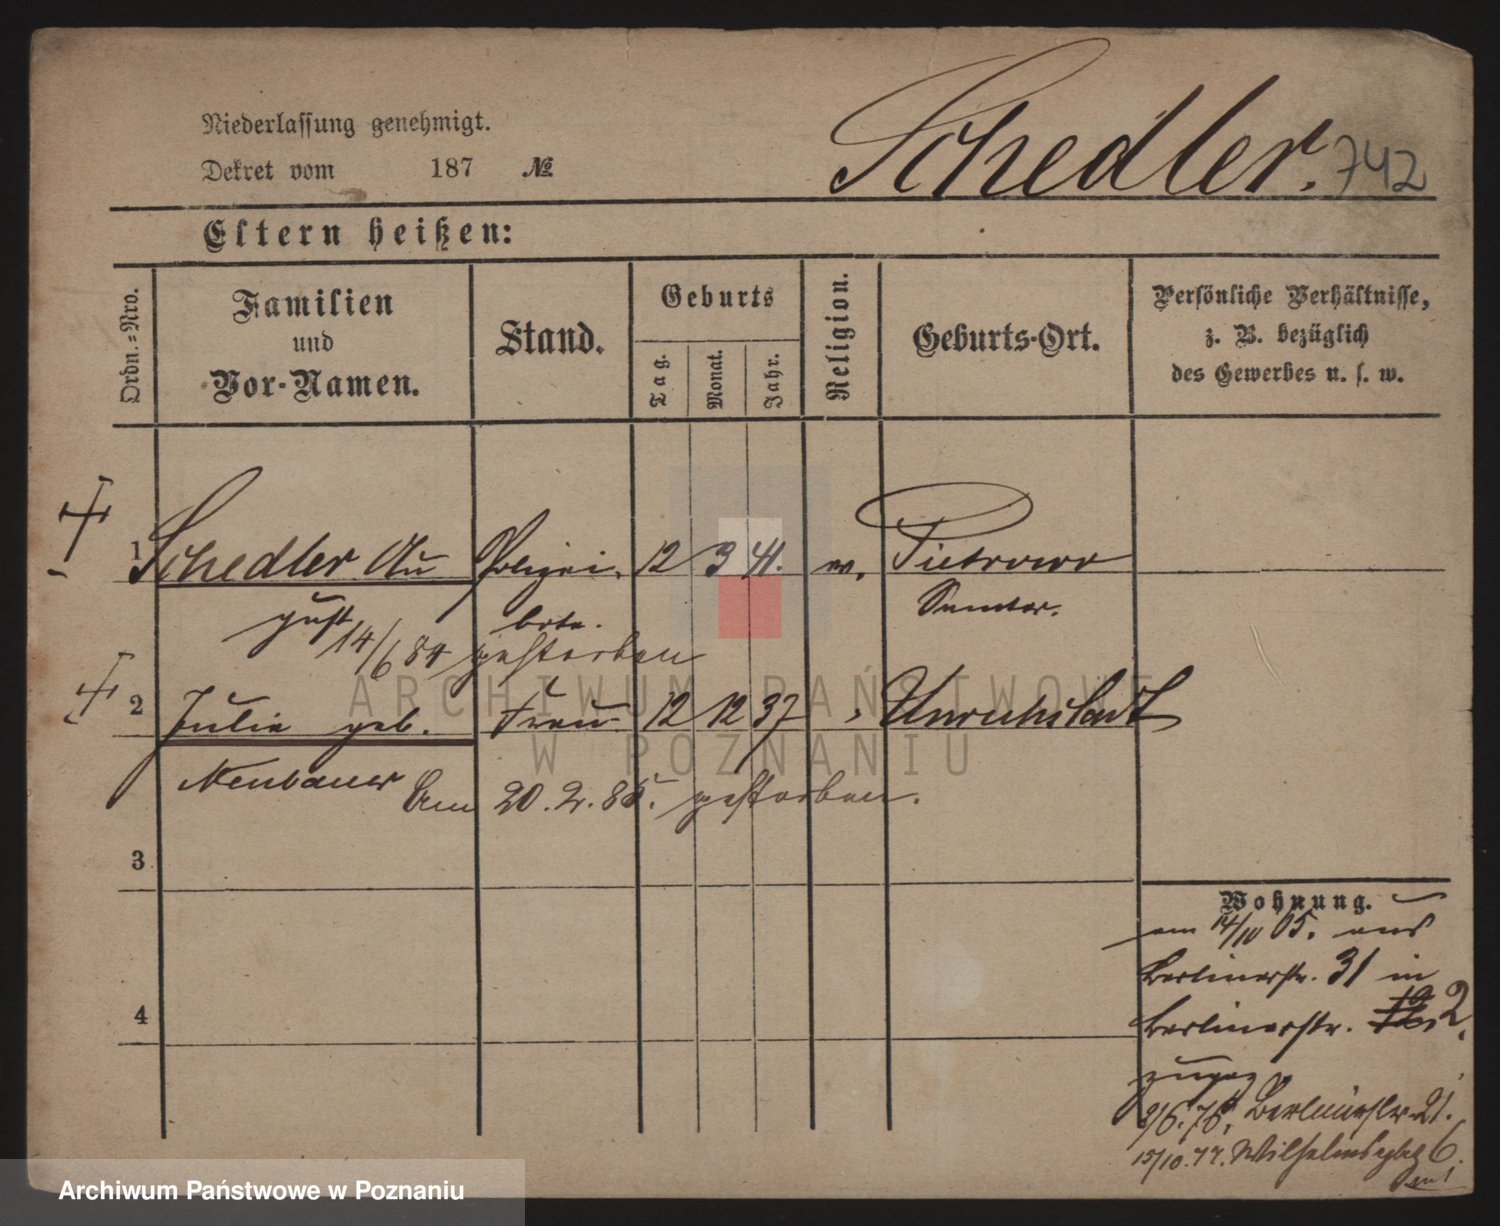 Niederlassung genehmigt.
Dekret vom 187 №
Schedler. 742
Eltern heißen:
Ordn.=Nro.
Familien
und
Vor-Namen.
Stand.
Geburts
Tag.
Monat.
Jahr.
Religion.
Geburts-Ort.
Persönliche Verhältnisse,
z. B. bezüglich
des Gewerbes u. s. w.
1 Schedler Au Polizei 12 3 41. ev. Pietrowo
gust bote. Samter.
14/6 84 gestorben
2 Julie geb. Frau 12 12 37 Unruhstadt
Neubauer Am 20. 2. 85. gestorben.
3
4
Wohnung.
am 14/10 05. aus
Berlinerstr. 31 in
Berlinerstr. 2.
zugez
9/6. 76. Berlinerstr 21.
15/10. 77. Wilhelmsplatz 6.
ARCHIWUM PAŃSTWOWE
W POZNANIU
Archiwum Państwowe w Poznaniu